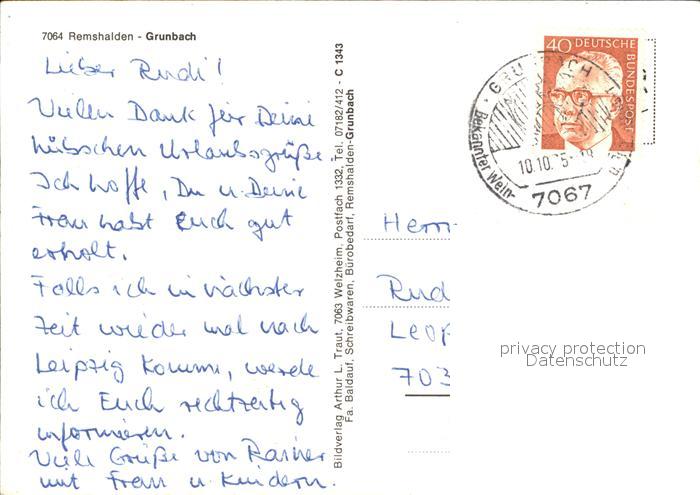 7064 Remshalden - Grunbach
Lieber Rudi!
Vielen Dank für Deine
hübschen Urlaubsgrüße.
Ich hoffe, Du u. Deine
Frau habt Euch gut
erholt.
Falls ich in nächster
Zeit wieder mal nach
Leipzig komme, werde
ich Euch rechtzeitig
informieren.
Viele Grüße von Rainer
mit Frau u. Kindern.
Bildverlag Arthur L. Traut, 7063 Welzheim, Postfach 1332, Tel. 07182/412 - C 1343
Fa. Baldauf, Schreibwaren, Bürobedarf, Remshalden-Grunbach
40 DEUTSCHE
BUNDESPOST
Bekannter Wein-
10.10.
7067
Herrn
Rud
Leop
703
privacy protection
Datenschutz